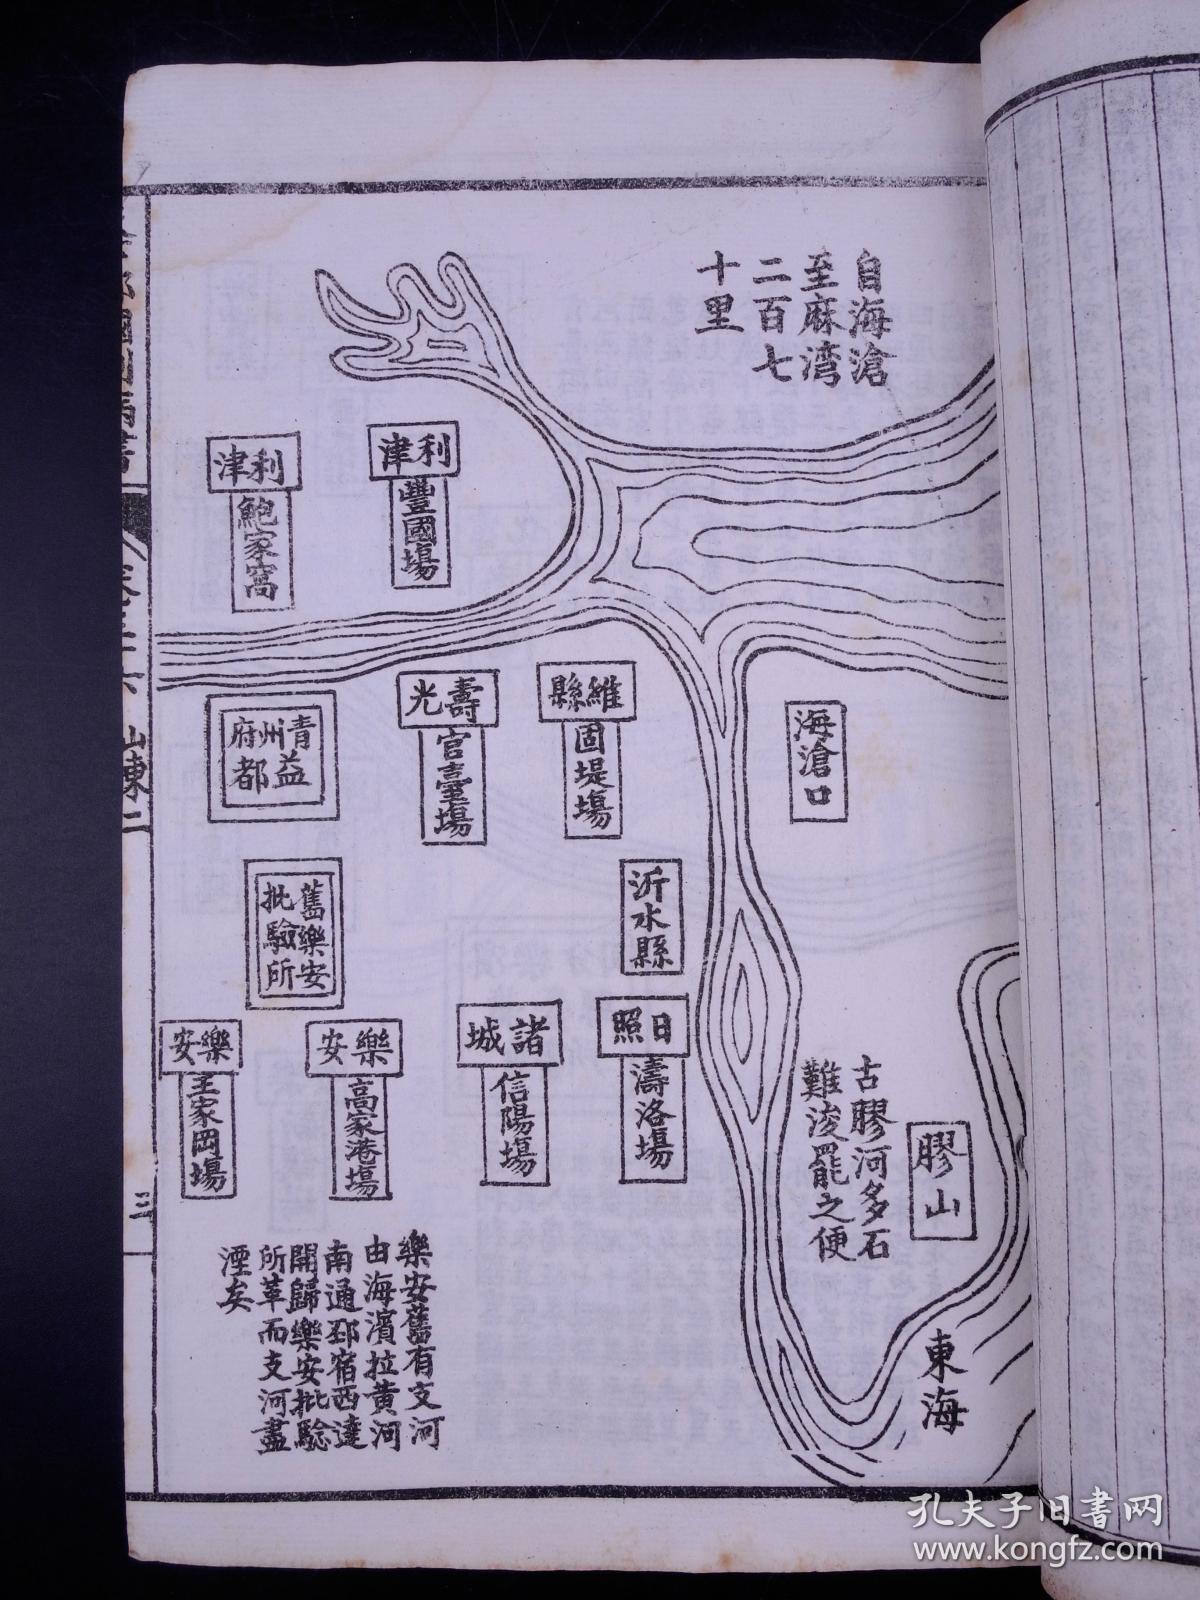 自海滄
至麻湾
二百七
十里
利津
豐國場
利津
鮑家窩
海滄口
維縣
固堤場
壽光
官臺場
青州府
益都
沂水縣
舊樂安
批驗所
日照
濤洛場
諸城
信陽場
樂安
高家港場
樂安
王家岡場
膠山
古膠河多石
難浚罷之便
東海
樂安舊有支河
由海濱拉黄河
南通邳宿西達
開歸樂安批驗
所革而支河盡
湮矣
山東二
三
孔夫子旧书网
www.kongfz.com